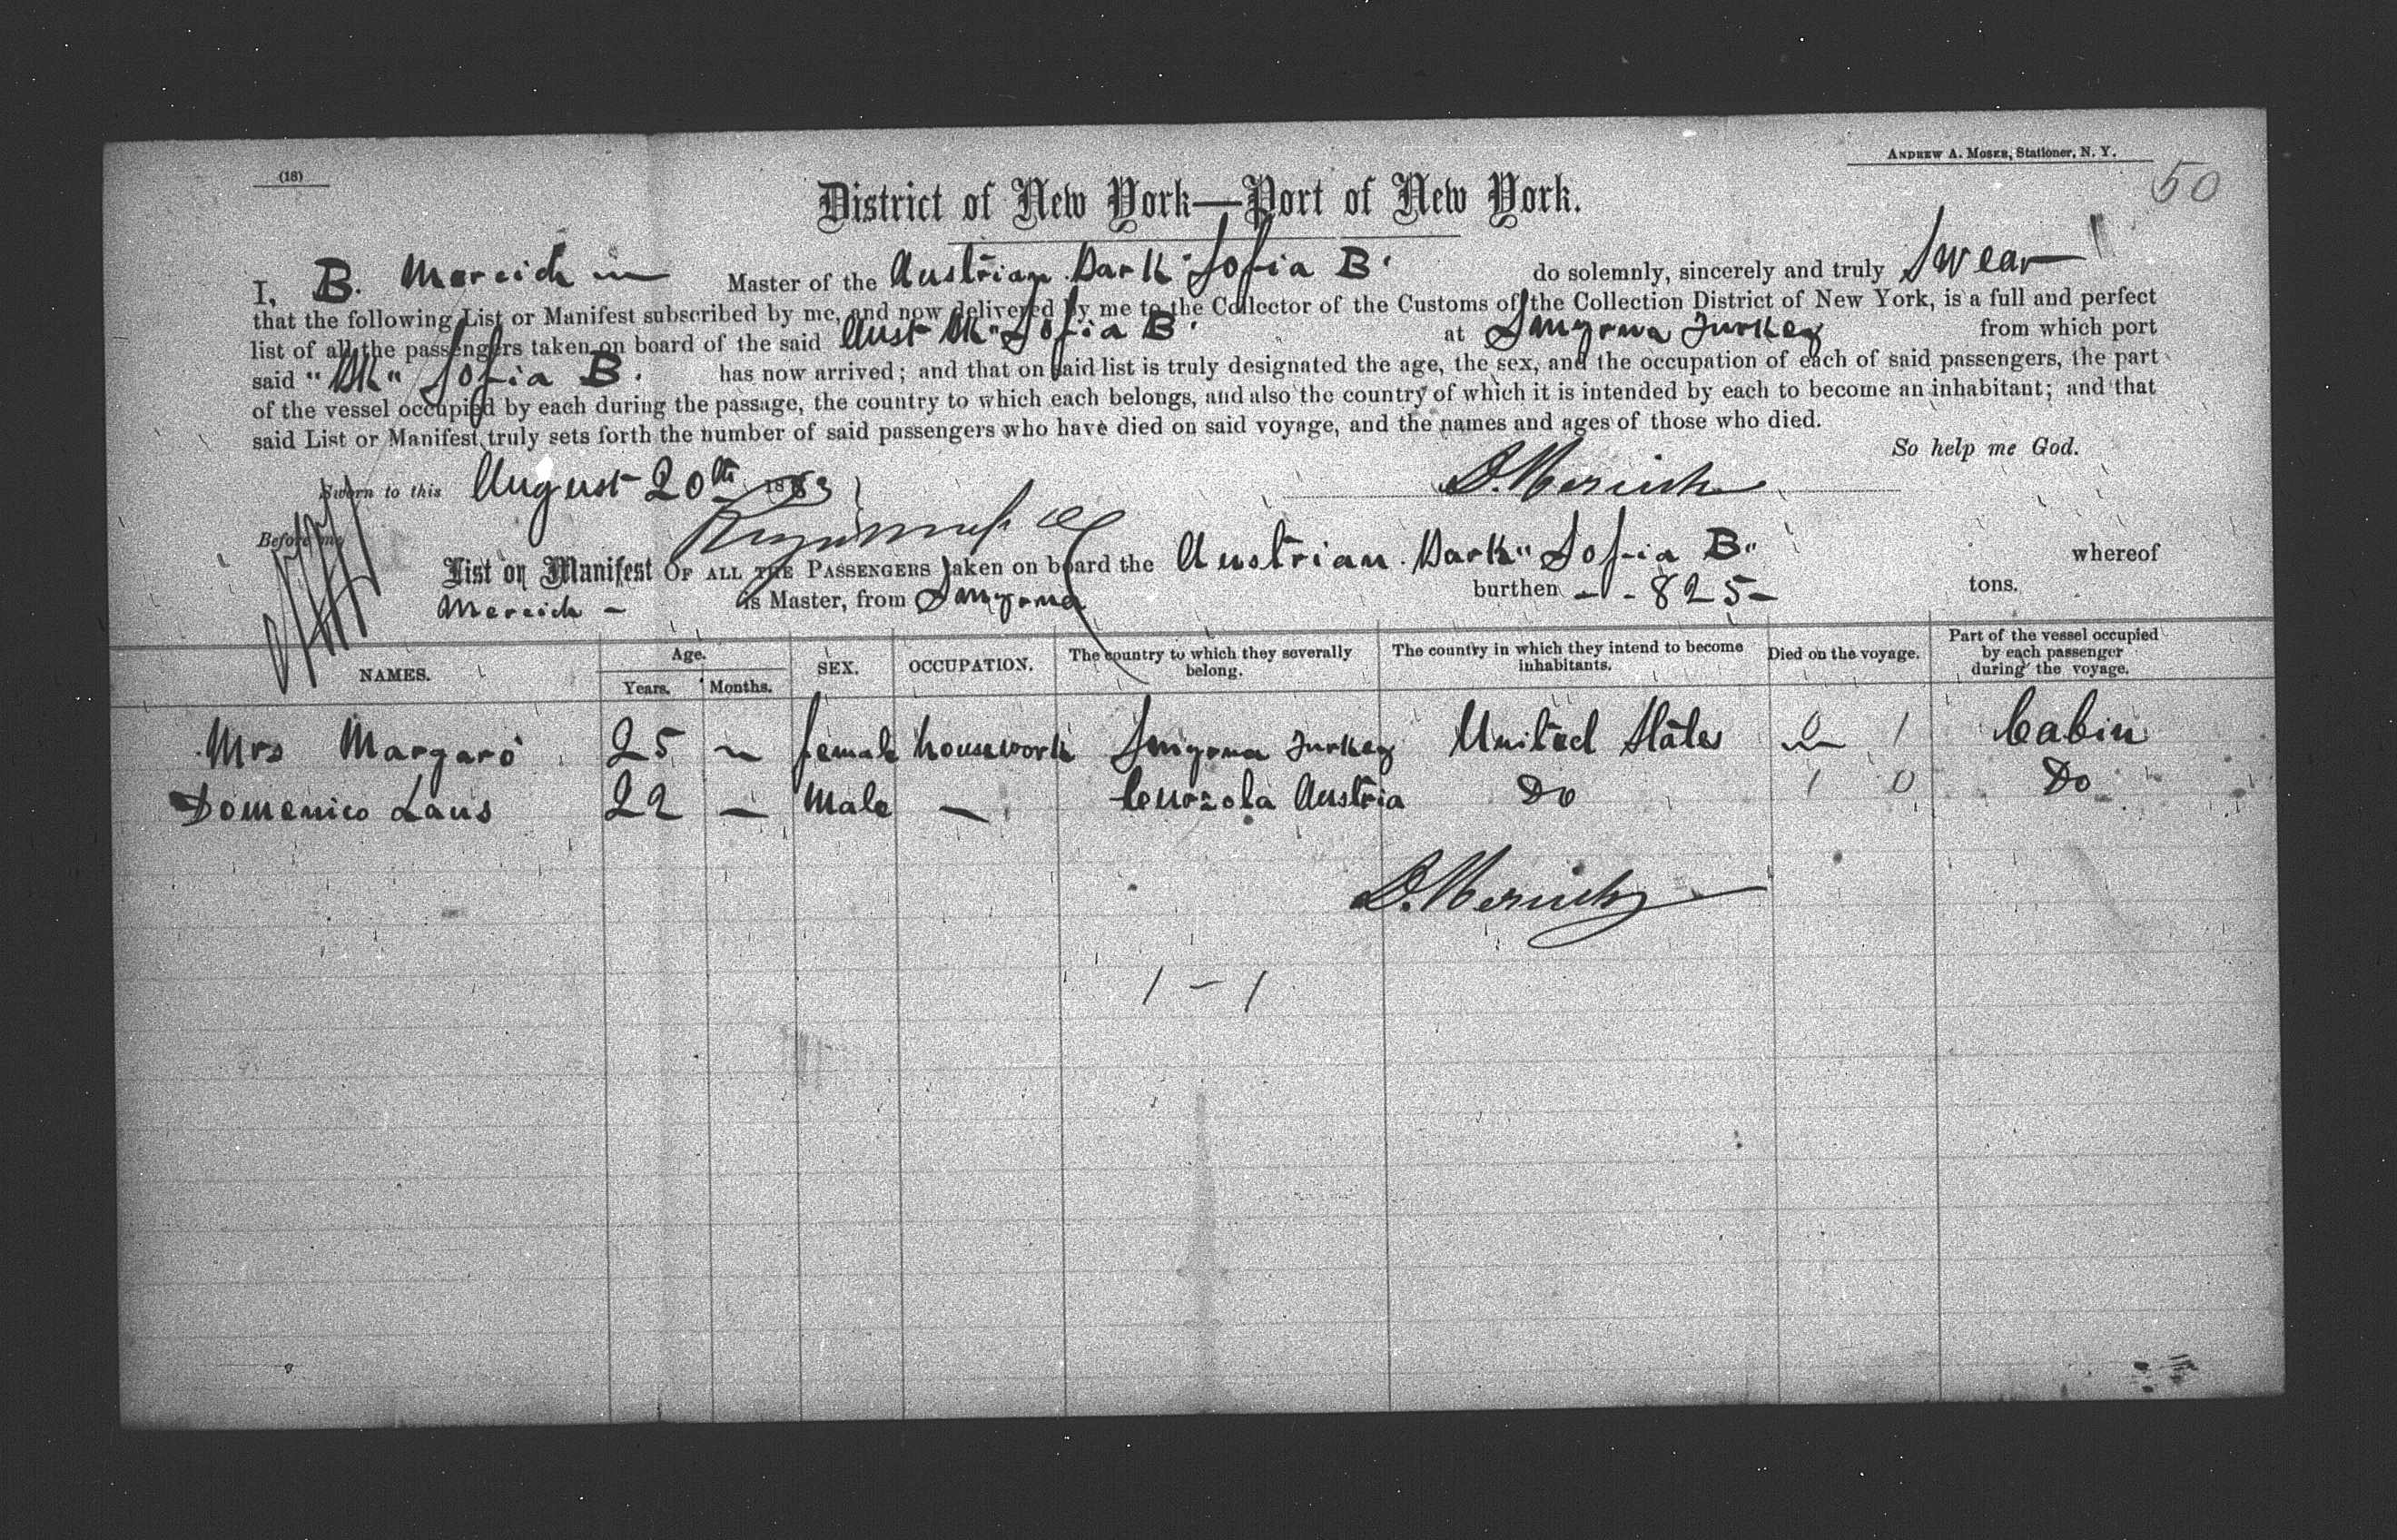 (18)
ANDREW A. MOSES, Stationer, N. Y.
50
District of New York—Port of New York.
I, B. Mercich Master of the Austrian Bark "Sofia B" do solemnly, sincerely and truly Swear
that the following List or Manifest subscribed by me, and now delivered by me to the Collector of the Customs of the Collection District of New York, is a full and perfect
list of all the passengers taken on board of the said Aust Bk "Sofia B" at Smyrna Turkey from which port
said "Bk" Sofia B. has now arrived; and that on said list is truly designated the age, the sex, and the occupation of each of said passengers, the part
of the vessel occupied by each during the passage, the country to which each belongs, and also the country of which it is intended by each to become an inhabitant; and that
said List or Manifest truly sets forth the number of said passengers who have died on said voyage, and the names and ages of those who died.
So help me God.
Sworn to this August 20th 1883
Before me
List or Manifest OF ALL THE PASSENGERS taken on board the Austrian Bark "Sofia B" whereof
Mercich – is Master, from Smyrna burthen – - 825 – tons.
NAMES. Age. Years. Months. SEX. OCCUPATION. The country to which they severally belong. The country in which they intend to become inhabitants. Died on the voyage. Part of the vessel occupied by each passenger during the voyage.
Mrs Margaro 25 – female housework Smyrna Turkey United States 0 1 Cabin
Domenico Laus 22 – Male – Curzola Austria Do 1 0 Do
1 – 1